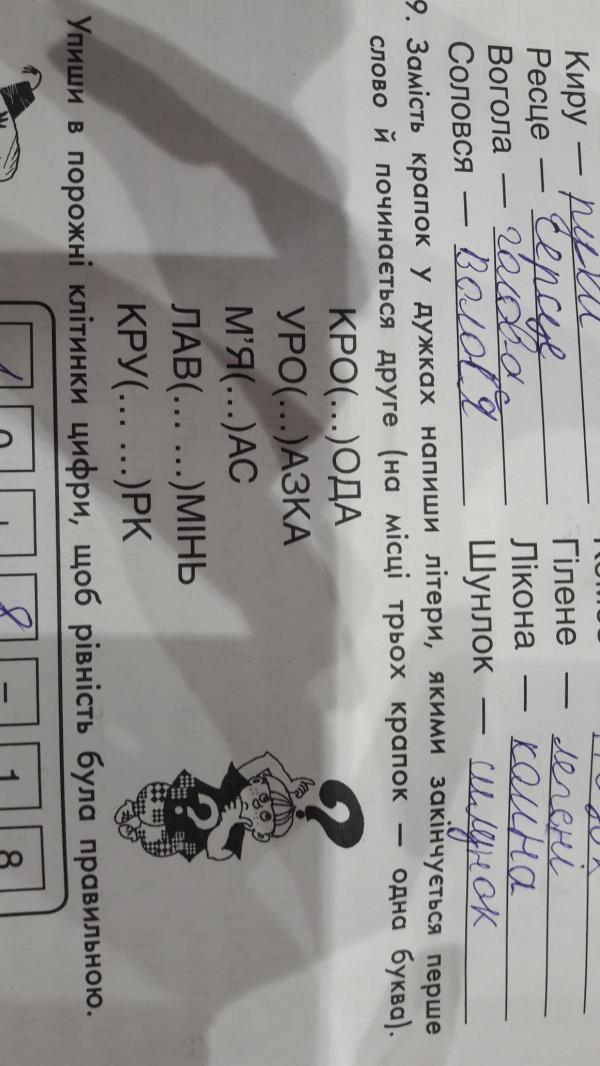 Киру — руки
Ресце — серце
Вогола — голова
Соловся — волосся
Гілене — легені
Лікона — коліна
Шунлок — шлунок
9. Замість крапок у дужках напиши літери, якими закінчується перше
слово й починається друге (на місці трьох крапок — одна буква).
КРО(...)ОДА
УРО(...)АЗКА
М'Я(...)АС
ЛАВ(... ...)МІНЬ
КРУ(... ...)РК
?
?
Упиши в порожні клітинки цифри, щоб рівність була правильною.
8 - 1 8